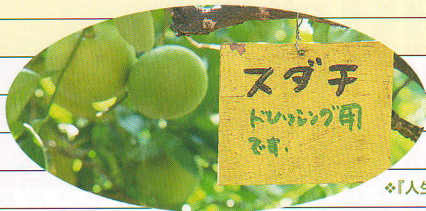 スダチ
ドレッシング用
です。
❖『人生